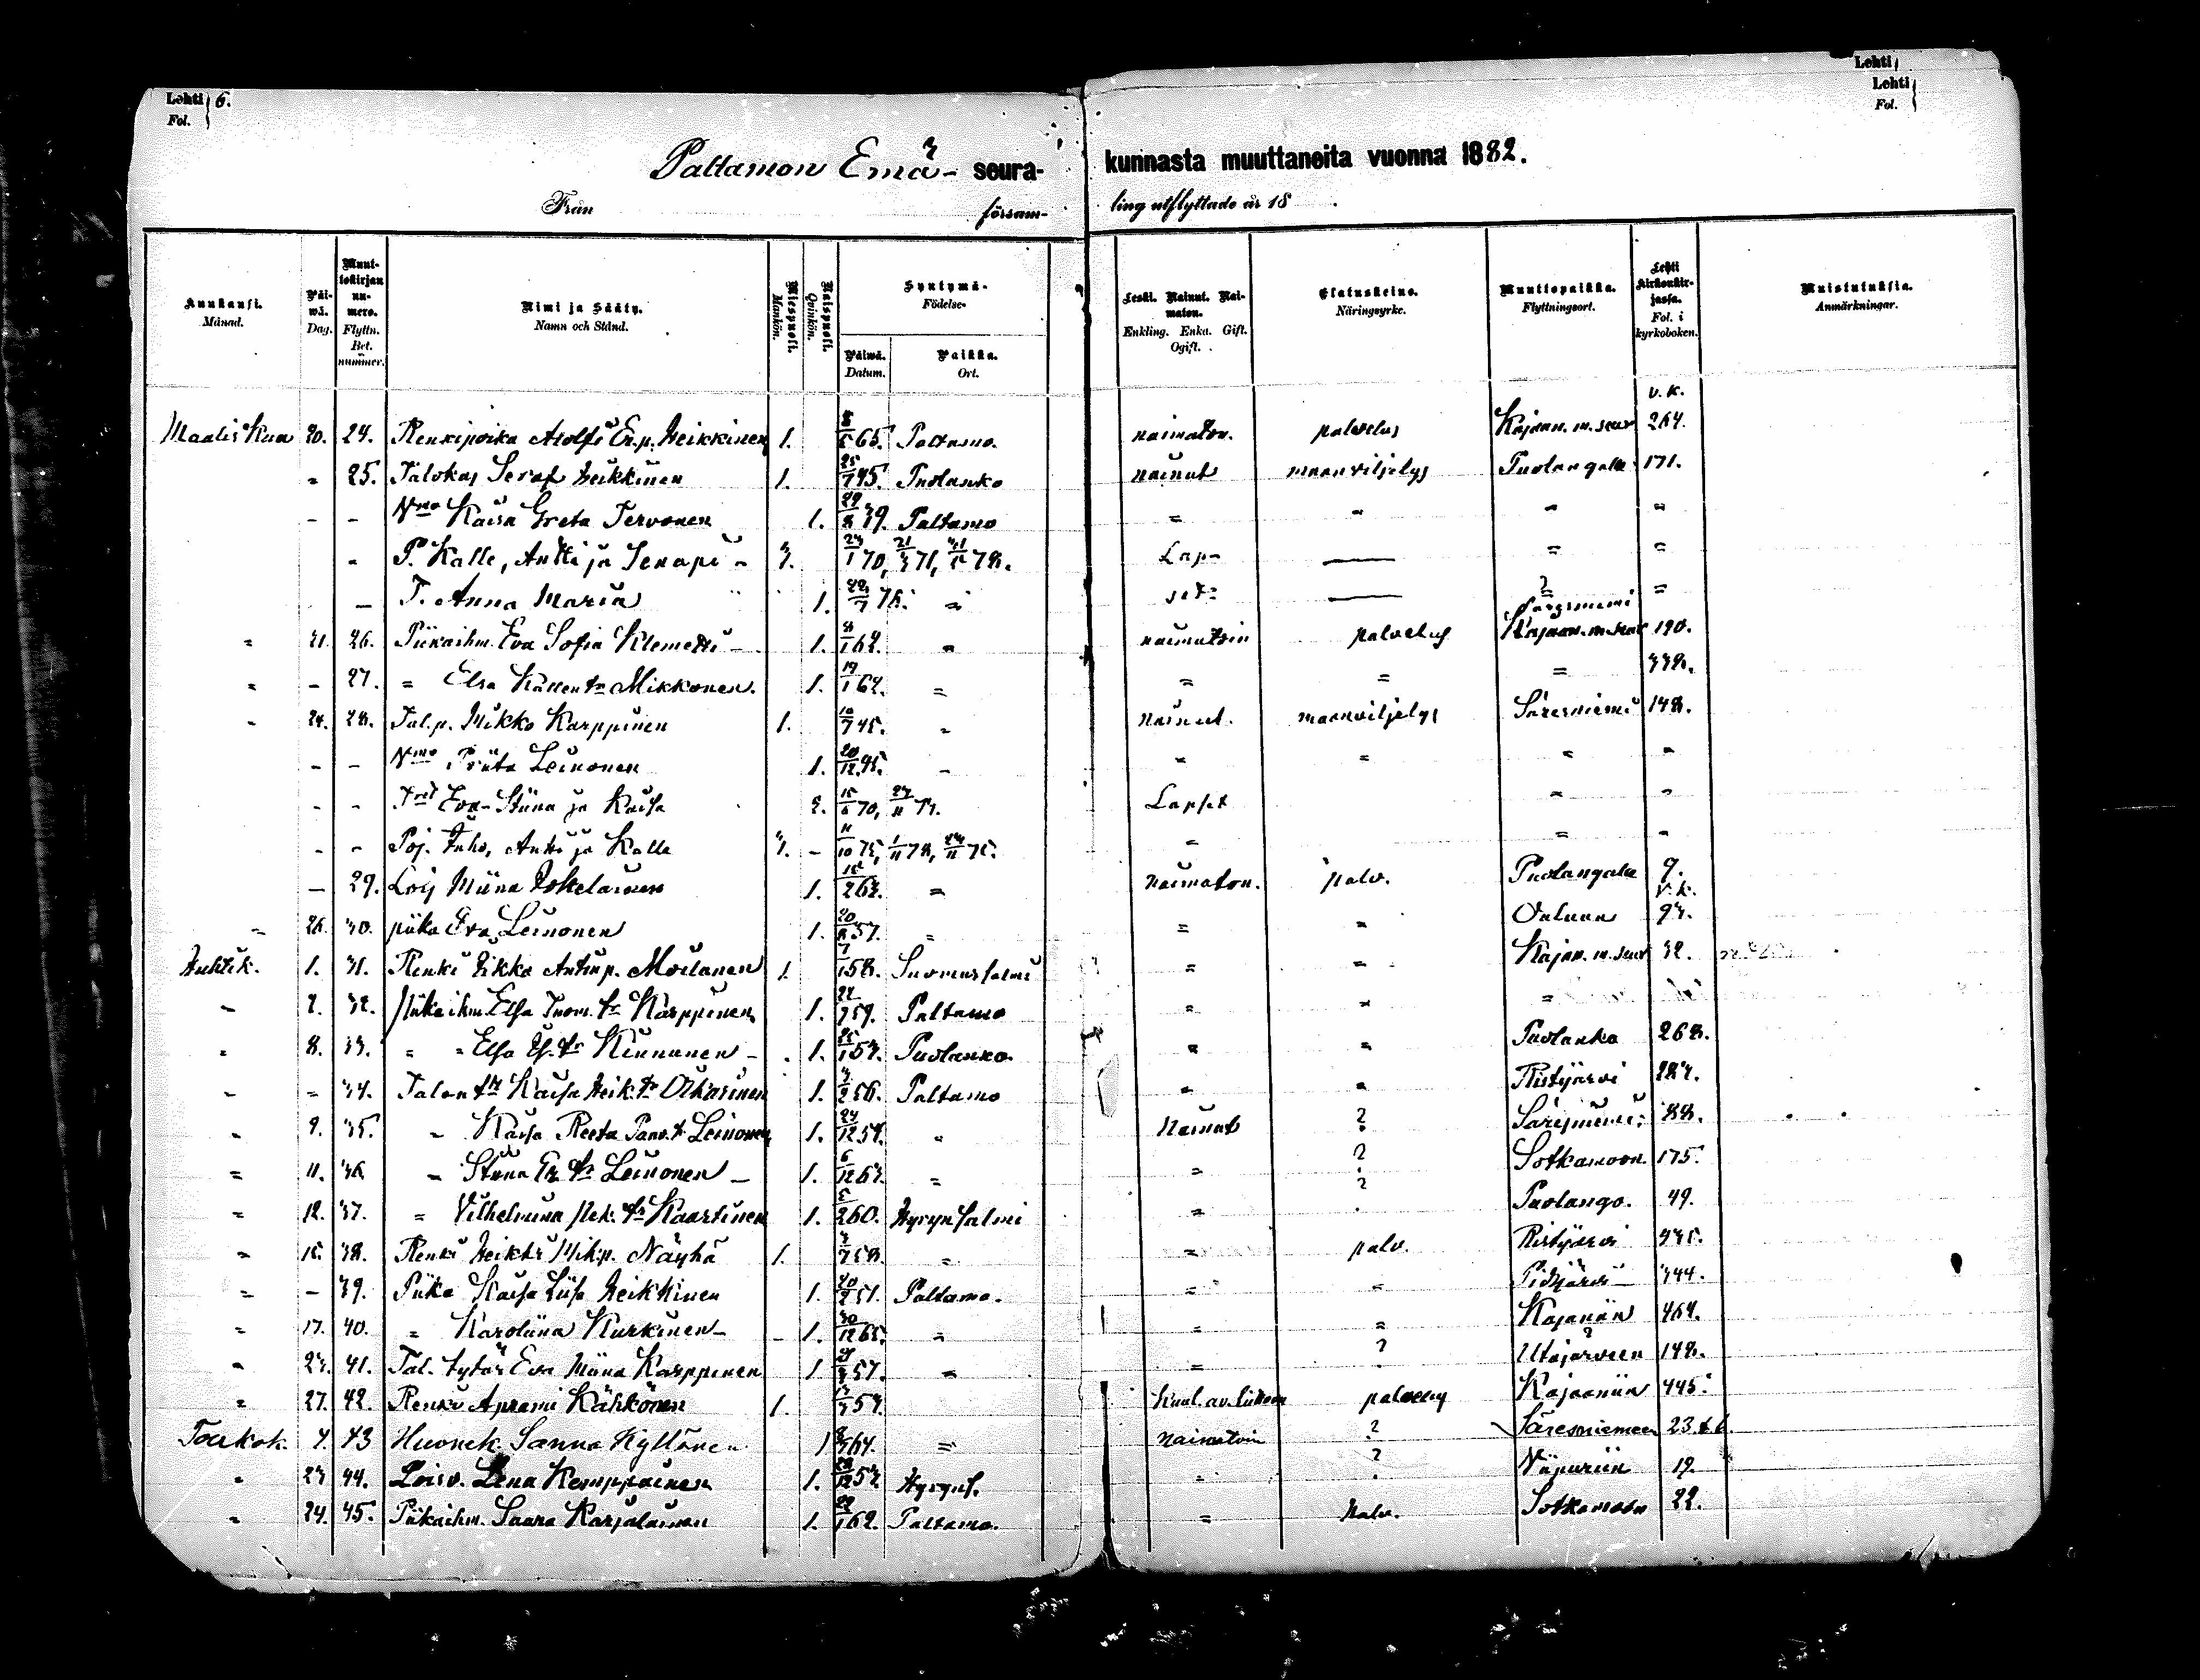 Lehti
Lehti 6.
Lehti
Fol.
Fol.
Paltamon Emä- seura- kunnasta muuttaneita vuonna 1882.
Från försam- ling utflyttade år 18
Kuukausi. Månad.
Päiwä. Dag.
Muuttokirjan numero. Flyttn. Bet. nummer.
Nimi ja Sääty. Namn och Stånd.
Miespuoli. Mankön.
Naispuoli. Qvinkön.
Syntymä- Födelse-
Päiwä. Datum.
Paikka. Ort.
Leski. Nainut. Naimaton. Enkling. Enka. Gift. Ogift.
Elatuskeino. Näringsyrke.
Muuttopaikka. Flyttningsort.
Lehti kirkonkirjassa. Fol. i kyrkoboken.
Muistutuksia. Anmärkningar.
v. k.
Maaliskuu 20. 24. Renkipoika Adolfi Er.p. Heikkinen 1. 65. Paltamo. naimaton. palvelus Kajaan. m. seur 264.
" 25. Talokas Seraf Heikkinen 1. 25/7 45. Puolanko nainut maanviljelys Puolangalle 171.
- - Vmo Kaisa Greta Tervonen 1. 39. Paltamo = " " "
- P. Kalle, Antti ja Senapi - 3. 70, 71, 78. Lap- — = =
- T. Anna Maria 1. 76. " set: — =
Säresniemi
" 21. 26. Piikaihm. Eva Sofia Klemetti - 1. 62. " naimatoin palvelus Kajaan. m. seur 190.
" - 27. = Elsa Kallen tr Mikkonen. 1. 19/1 62. = = = = 338.
" 24. 28. Tal.p. Mikko Karppinen 1. 10/7 45. " nainut. maanviljelys Säresniemi 148.
- - Vmo Priita Leinonen 1. 20/12 45. - " " " "
- - Tret Eva-Stiina ja Kaisa 2. 70, 73. Lapset " "
- - Poj. Juho, Antti ja Kalle 3. - 75, 78, " = "
- 29. Loij Miina Tokelainen 1. 63. = naimaton. palv. Puolangalle 9.
v. k.
= 26. 30. piika Eva Leinonen 1. 57. = = " Ouluun 93.
Huhtik. 1. 31. Renki Heikki Antinp. Moilanen 1. 58. Suomussalmi " " Kajan. m. seur 32.
" 2. 32. piikaihm. Elsa Tuom. tr Karppinen 1. 59. Paltamo " " =
" 8. 33. " " Elsa tr Kinnunen - 1. 53. Puolanko. " " Puolanko 268.
" " 34. Talon tr Kaisa Heik. tr Oikarinen 1. 56. Paltamo " " Ristijärvi 283.
" 9. 35. " Kaisa Reeta Paav. t. Leinonen 1. 24/12 54. " Nainut ? Säresniemi: 88.
= 11. 36 " Stina Er. tr Leinonen - 1. 6/12 63. = = ? Sotkamoon. 175.
= 12. 37. = Vilhelmina Pek. tr Kaartinen 1. 5/2 60. Hyrynsalmi = ? Puolango. 49.
= 15. 38. Renki Heikki Mik.p. Näyhä 1. 58. = = palv. Ristijärvi 335.
= - 39. Piika Kaisa Liisa Heikkinen 1. 51. Paltamo. = = Ristijärvi - 344.
= 17. 40. = Karoliina Kurkinen - 1. 30/12 65. = = = Kajaniin 464.
" 23. 41. Tal. tytär Eva Miina Karppinen 1 57. = = ? Utajärveen 148.
" 27. 42. Renki Aprami Kähkönen 1. 54. Kuul. av. liittoon palvelus Kajaaniin 445.
Toukok. 4. 43 Huonek. Sanna Kyllönen 1 64. = Naimatoin ? Säresniemeen 23.
" 23 44. Loisv. Lena Kemppainen 1. 53. Hyryns. " ? Viipuriin 19.
" 24. 45. Piikaihm. Saara Karjalainen 1. 62. Paltamo. = Palv. Sotkamoon 22.